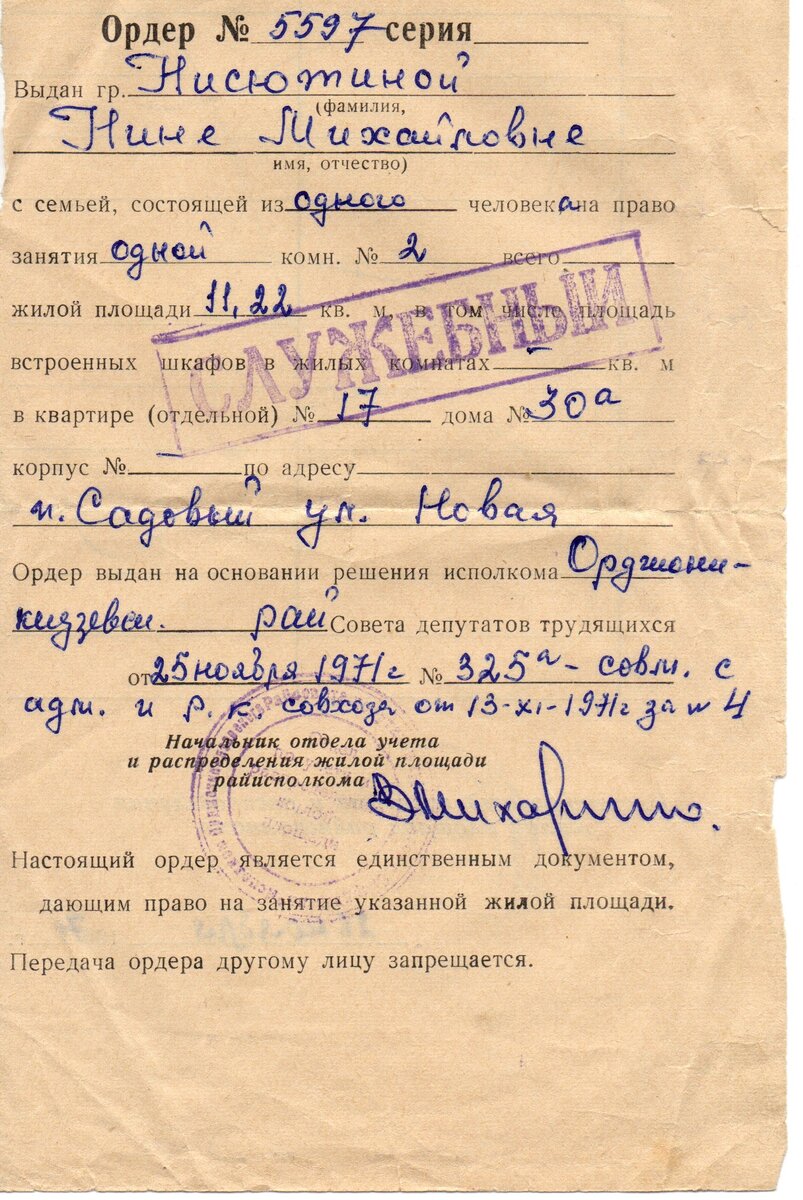 Ордер № 5597 серия
Выдан гр. Нисютиной
(фамилия,
Нине Михайловне
имя, отчество)
с семьей, состоящей из одного человека на право
занятия одной комн. № 2 всего
жилой площади 11,22 кв. м, в том числе площадь
СЛУЖЕБНЫЙ
встроенных шкафов в жилых комнатах — кв. м
в квартире (отдельной) № 17 дома № 30а
корпус № — по адресу
п. Садовый ул. Новая
Ордер выдан на основании решения исполкома Орджони-
кидзевск. рай Совета депутатов трудящихся
от 25 ноября 1971 г № 325а - совм. с
адм. и р.к. совхоза от 13-XI-1971г за № 4
Начальник отдела учета
и распределения жилой площади
райисполкома
Настоящий ордер является единственным документом,
дающим право на занятие указанной жилой площади.
Передача ордера другому лицу запрещается.